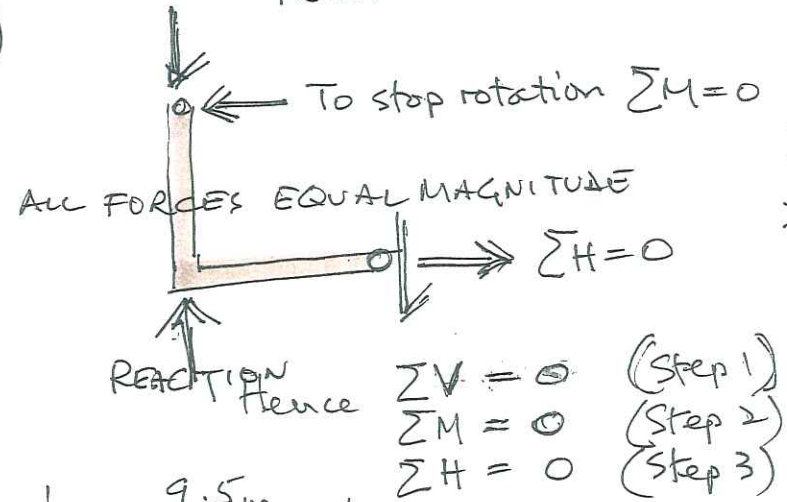 To stop rotation ΣM=0
ALL FORCES EQUAL MAGNITUDE
ΣH=0
REACTION
Hence ΣV = 0 (Step 1)
ΣM = 0 (Step 2)
ΣH = 0 (Step 3)
9.5m